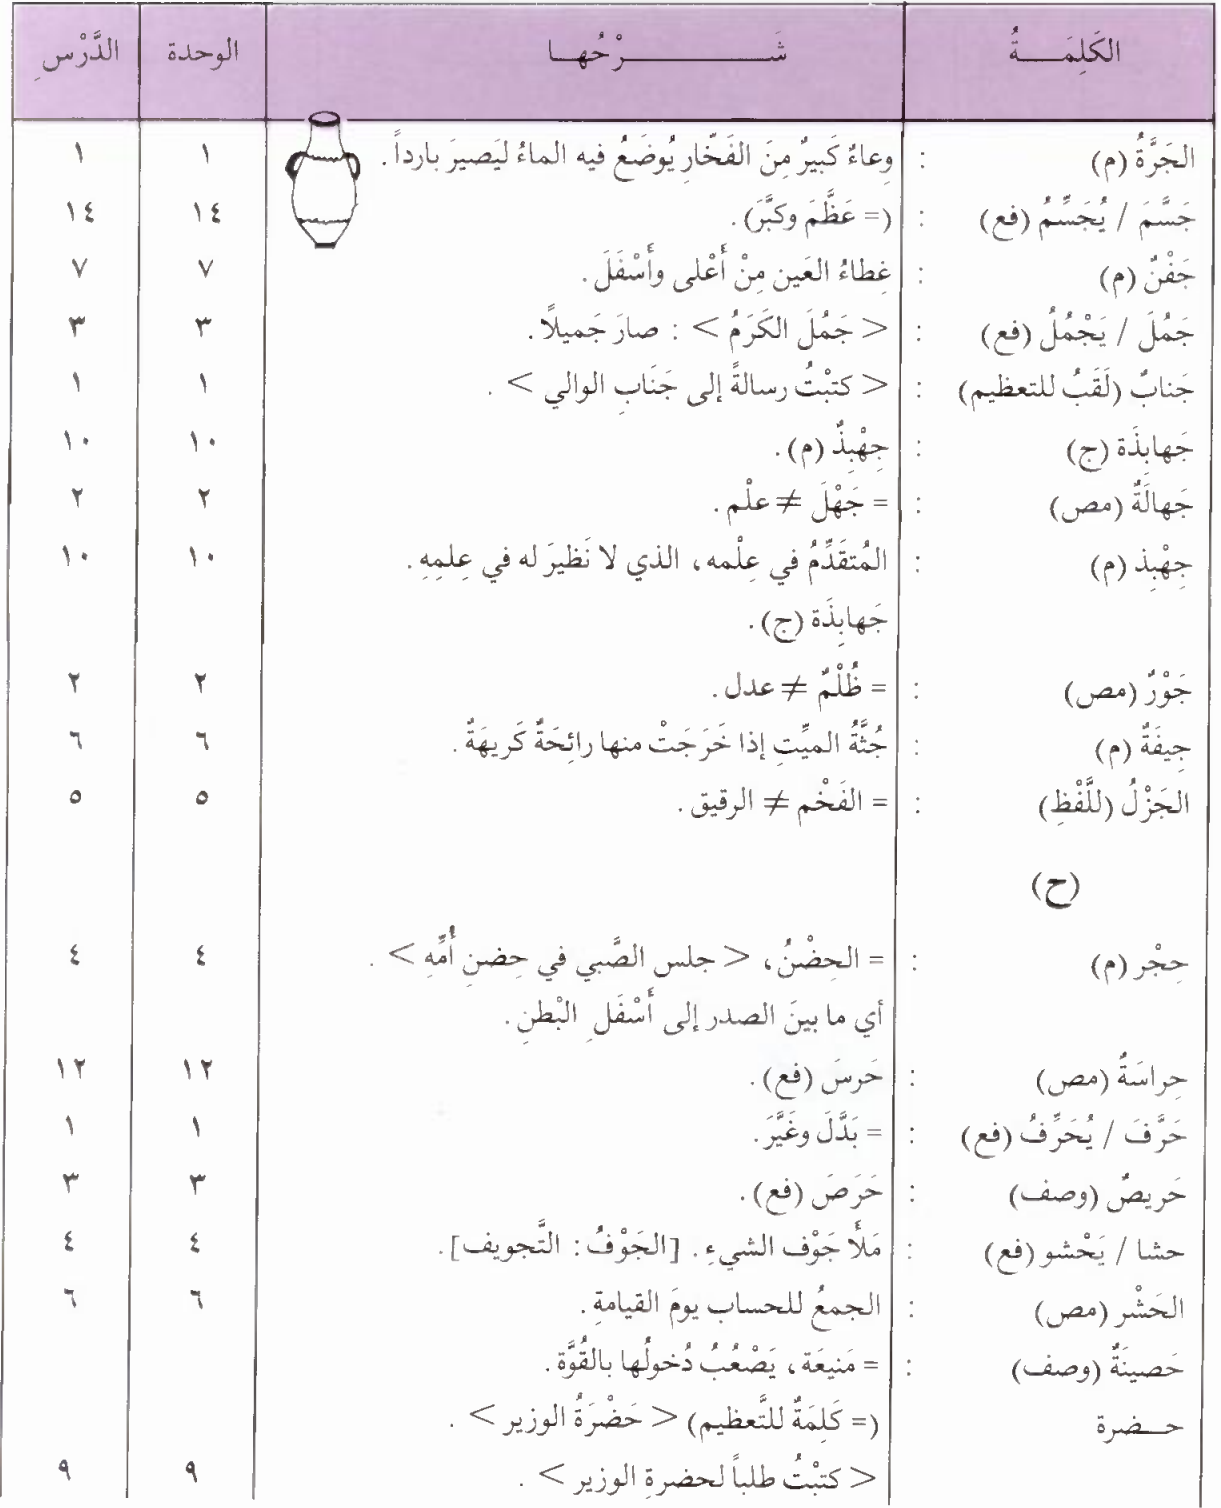 الكَلِمَـــةُ شَـــــــــرْحُهـا الوحدة الدَّرْس
الجَرَّةُ (م) : وِعاءٌ كَبيرٌ مِنَ الفَخّارِ يُوضَعُ فيه الماءُ ليَصيرَ بارداً. ١ ١
جَسَّمَ / يُجَسِّمُ (فع) : (= عَظَّمَ وكبَّرَ). ١٤ ١٤
جَفْنٌ (م) : غِطاءُ العَين مِنْ أَعْلى وأَسْفَلَ. ٧ ٧
جَمُلَ / يَجْمُلُ (فع) : < جَمُلَ الكَرَمُ > : صارَ جَميلاً. ٣ ٣
جَنابٌ (لَقَبٌ للتعظيم) : < كتبْتُ رسالةً إلى جَنَابِ الوالي >. ١ ١
جَهابِذَة (ج) : جِهْبِذٌ (م). ١٠ ١٠
جَهالَةٌ (مص) : = جَهْلَ ≠ علْم. ٢ ٢
جِهْبِذ (م) : المُتقَدِّمُ في عِلْمه، الذي لا نَظيرَ له في عِلمِهِ. ١٠ ١٠
جَهابِذَة (ج).
جَوْرٌ (مص) : = ظُلْمٌ ≠ عدل. ٢ ٢
جِيفَةٌ (م) : جُثَّةُ الميِّتِ إذا خَرَجَتْ منها رائِحَةٌ كَريهَةٌ. ٦ ٦
الجَزْلُ (للَّفْظِ) : = الفَخْم ≠ الرقيق. ٥ ٥
(ح)
حِجْر (م) : = الحِضْنُ، < جلس الصَّبي في حِضنِ أُمِّهِ >. ٤ ٤
أي ما بينَ الصدر إلى أَسْفَلِ البْطنِ.
حِراسَةٌ (مص) : حَرسَ (فع). ١٢ ١٢
حَرَّفَ / يُحَرِّفُ (فع) : = بَدَّلَ وغَيَّرَ. ١ ١
حَريصٌ (وصف) : حَرَصَ (فع). ٣ ٣
حشا / يَحْشو (فع) : مَلأَ جَوْف الشيءِ. [الجَوْفُ: التَّجويف]. ٤ ٤
الحَشْر (مص) : الجمعُ للحساب يومَ القيامةِ. ٦ ٦
حَصينَةٌ (وصف) : = مَنيعَة، يَصْعُبُ دُخولُها بالقُوَّة.
حــضرة (= كَلِمَةٌ للتَّعظيم) < حَضْرَةُ الوزير >.
< كتبْتُ طلباً لحضرةِ الوزير >. ٩ ٩